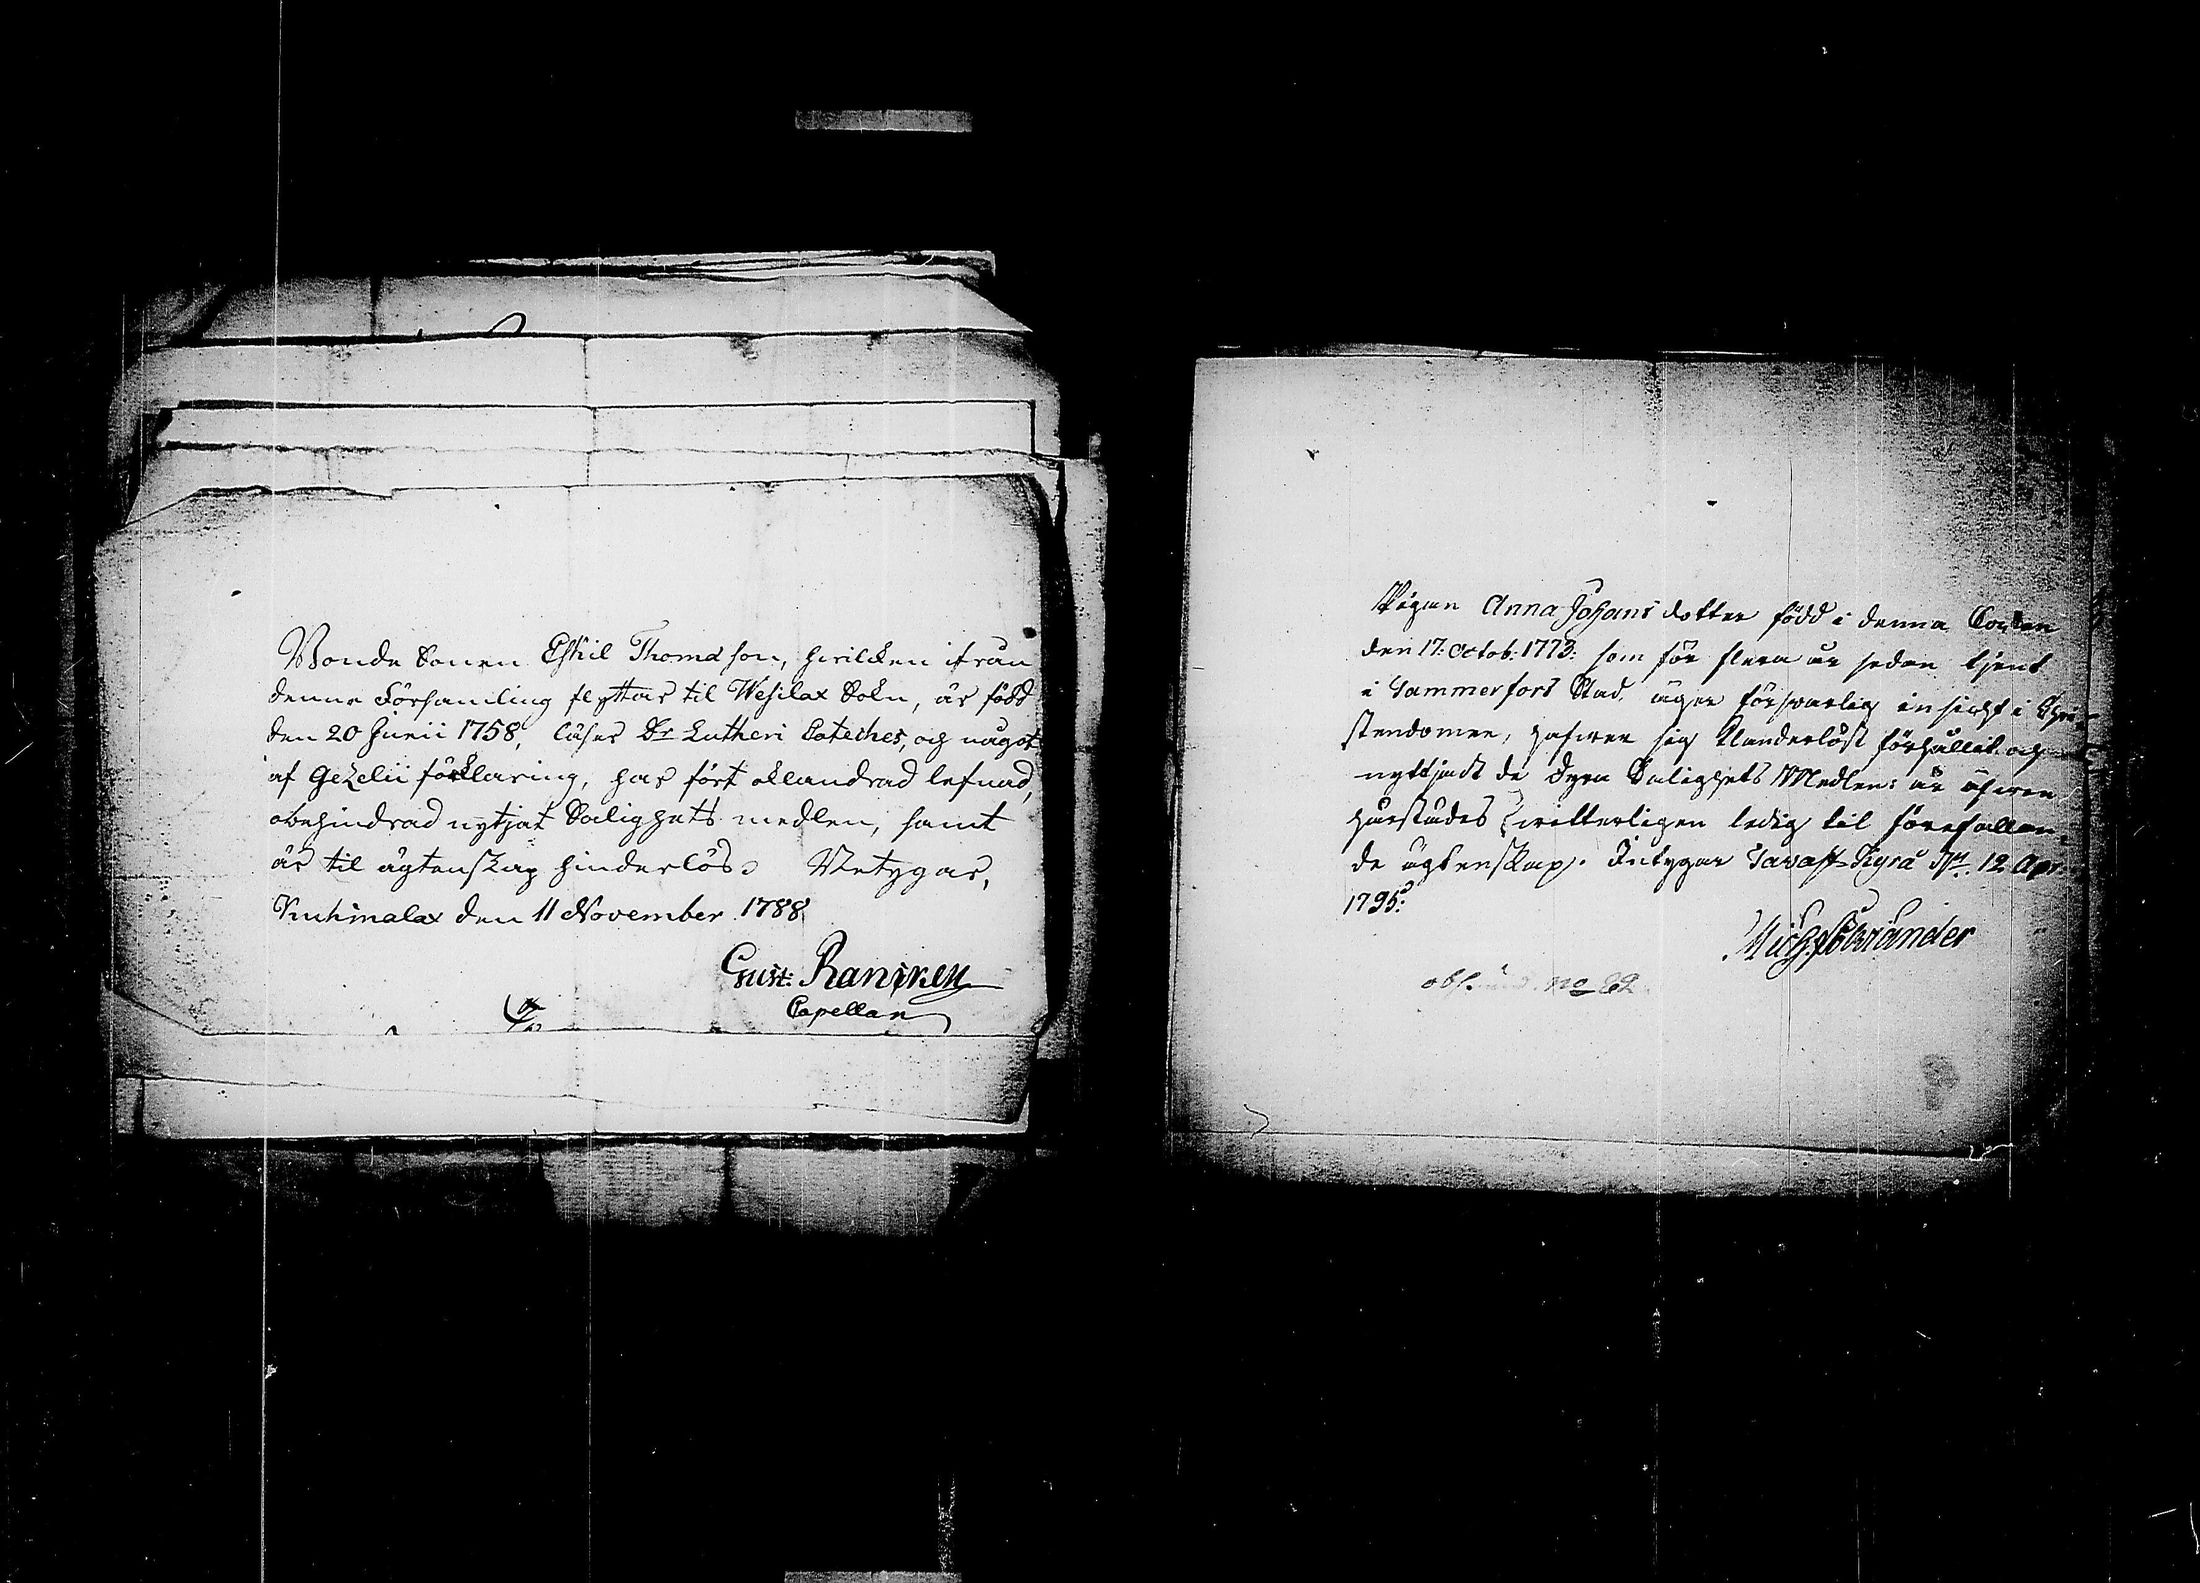 Bonde Sonen Eskil Thomasson, hvilcken ifrån
denne Församling flyttar til Wesilax Sokn, är född
den 20 Junii 1758, läser Dr Lutheri Cateches, och något
af Gezelii förklaring, har fört oklandrad lefnad,
obehindrad nytjat Salighets medlen, samt
är til ägtenskap hinderlös. Betygar,
Kuhmalax den 11 November 1788
Gust: Rancken
Capellan
Pigan Anna Johans dotter född i denna Socken
den 17: Octob: 1773: som för flera år sedan tjent
i Tammerfors Stad, äger försvarlig insicht i Chri-
stendomen, hafwer sig Klanderlöst förhållit och
nyttjadt de dyra Salighets Medlen: är äfwen
härstädes witterligen ledig til förefallan-
de ägtenskap. Intygar Tavast-Kyrö 12 Apr:
1795:
obs. no 82